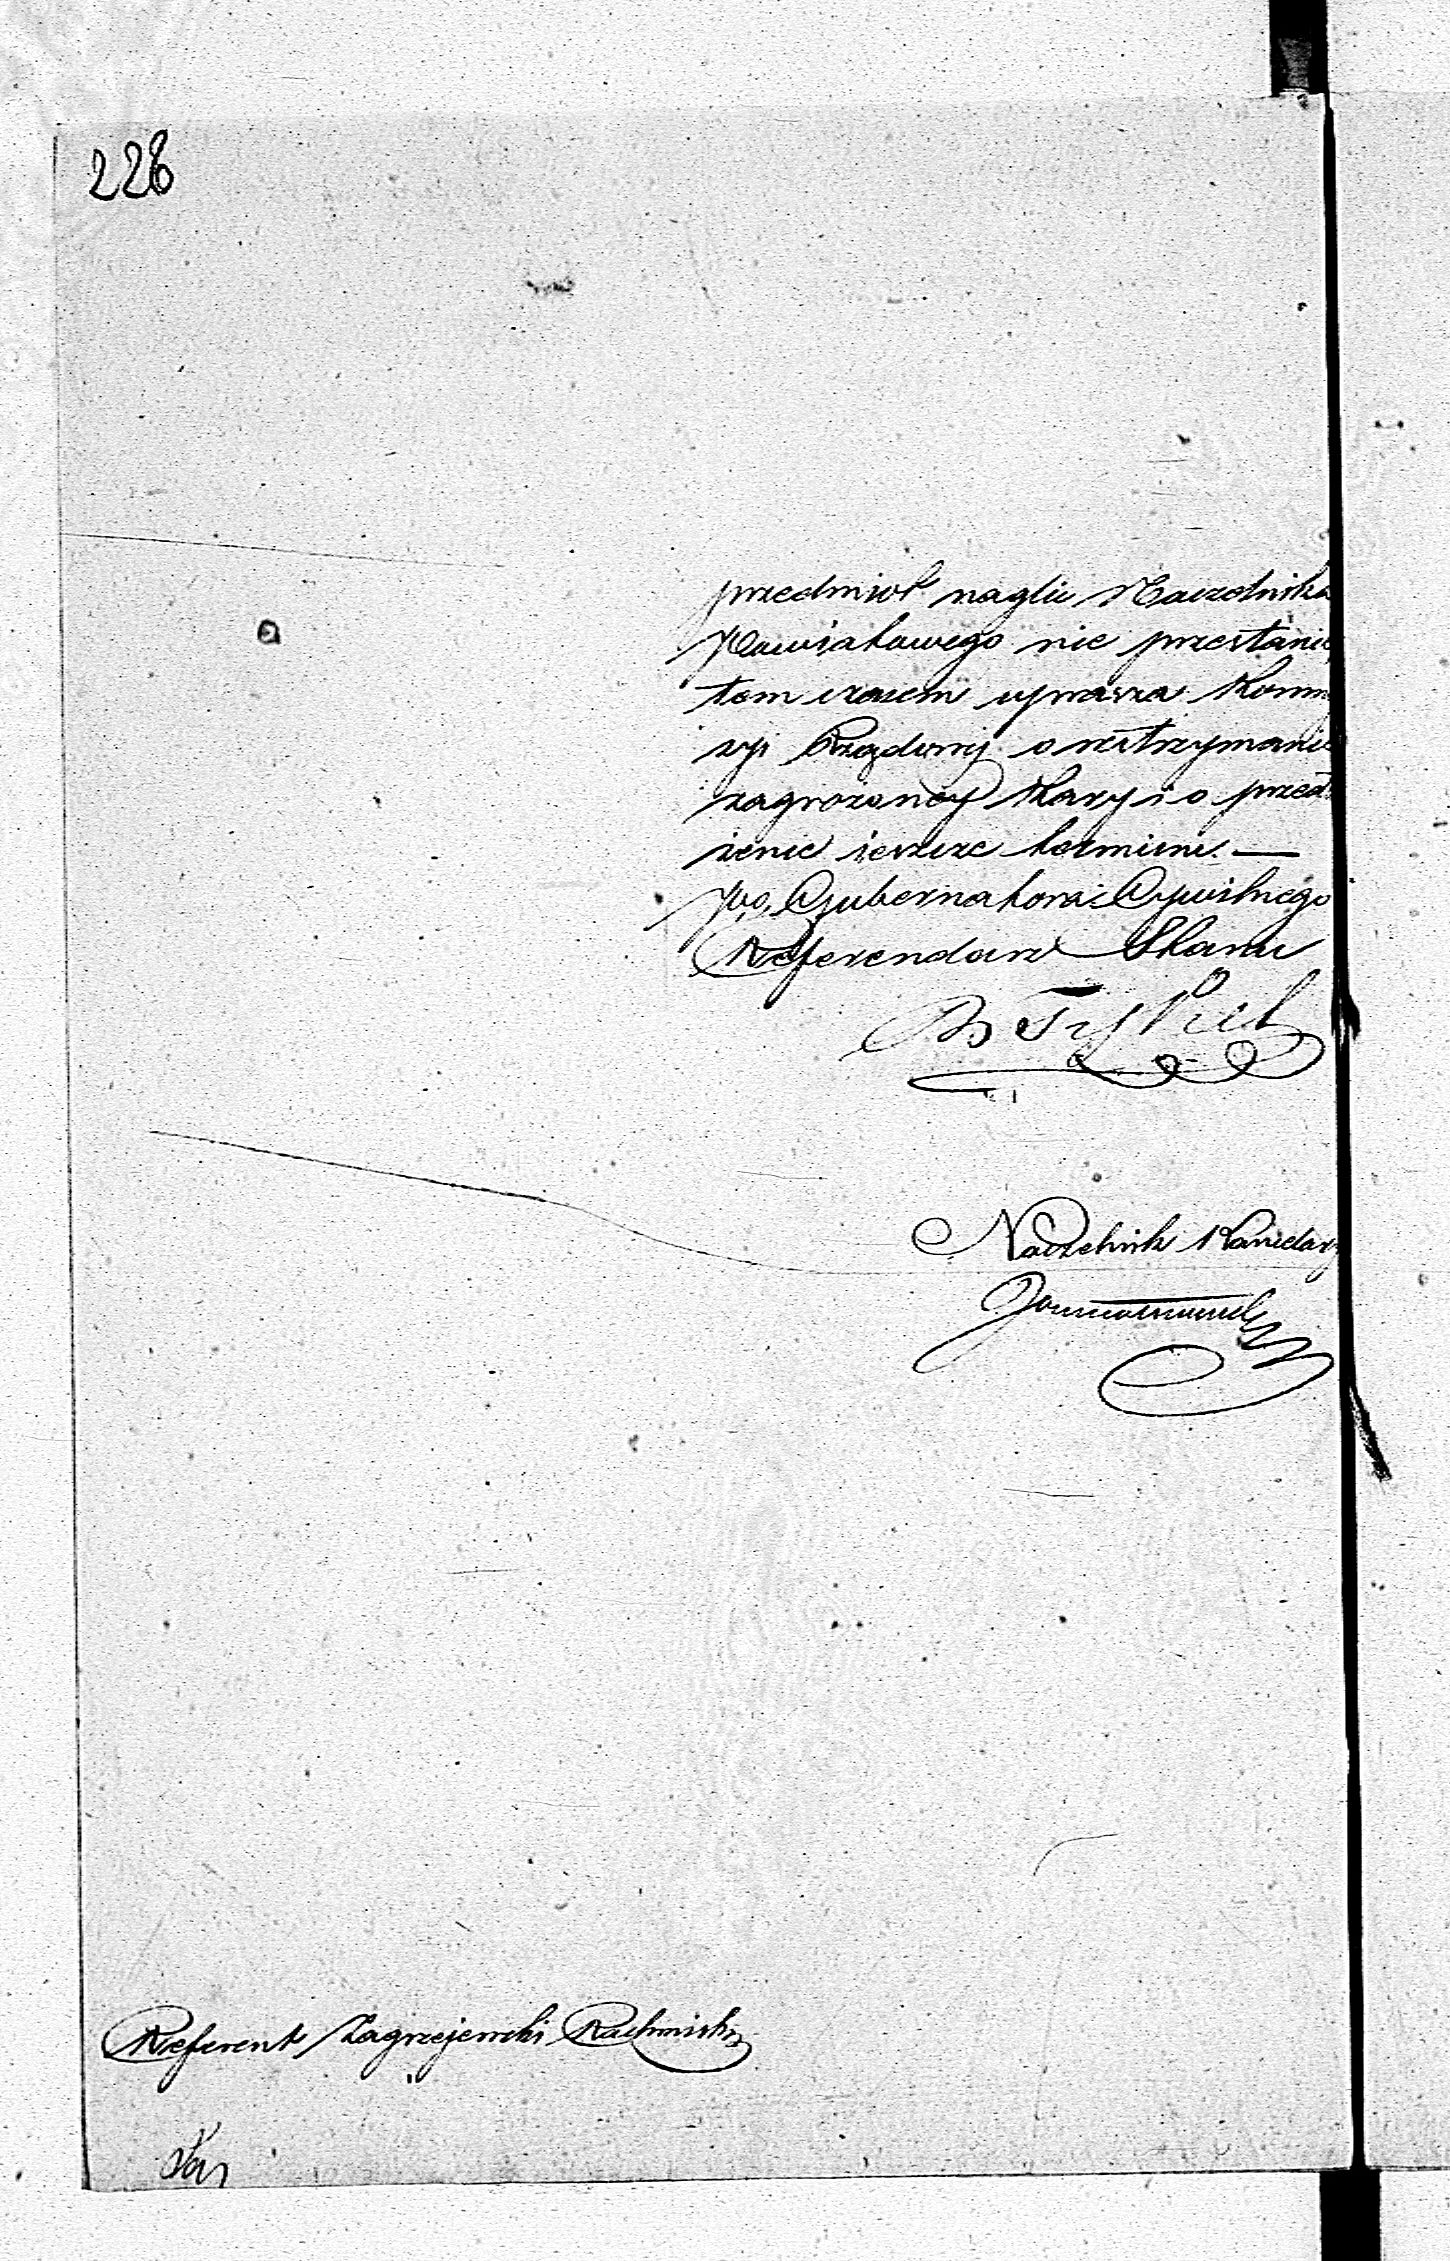 228
przedmiot naglić Naczelnika
Powiatowego nie przestanie,
tem czasem uprasza Kommi
syi Rządowej o wstrzymanie
zagrożoney kary i o przedłu
żenie ieszcze terminu. —
po. Gubernatora Cywilnego
Referendarz Stanu
Naczelnik Kancelaryi
Referent Zagrzejewski